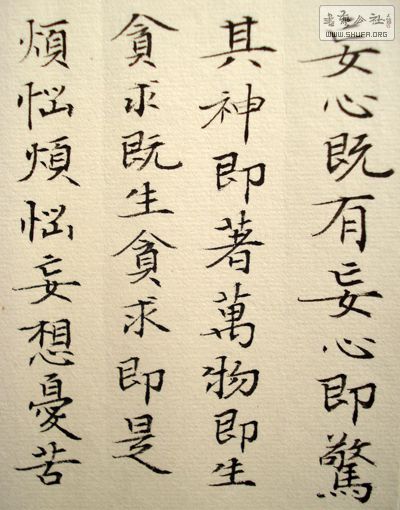 妄心既有妄心即驚
其神即著萬物即生
貪求既生貪求即是
煩惱煩惱妄想憂苦
www.SHUFA.ORG